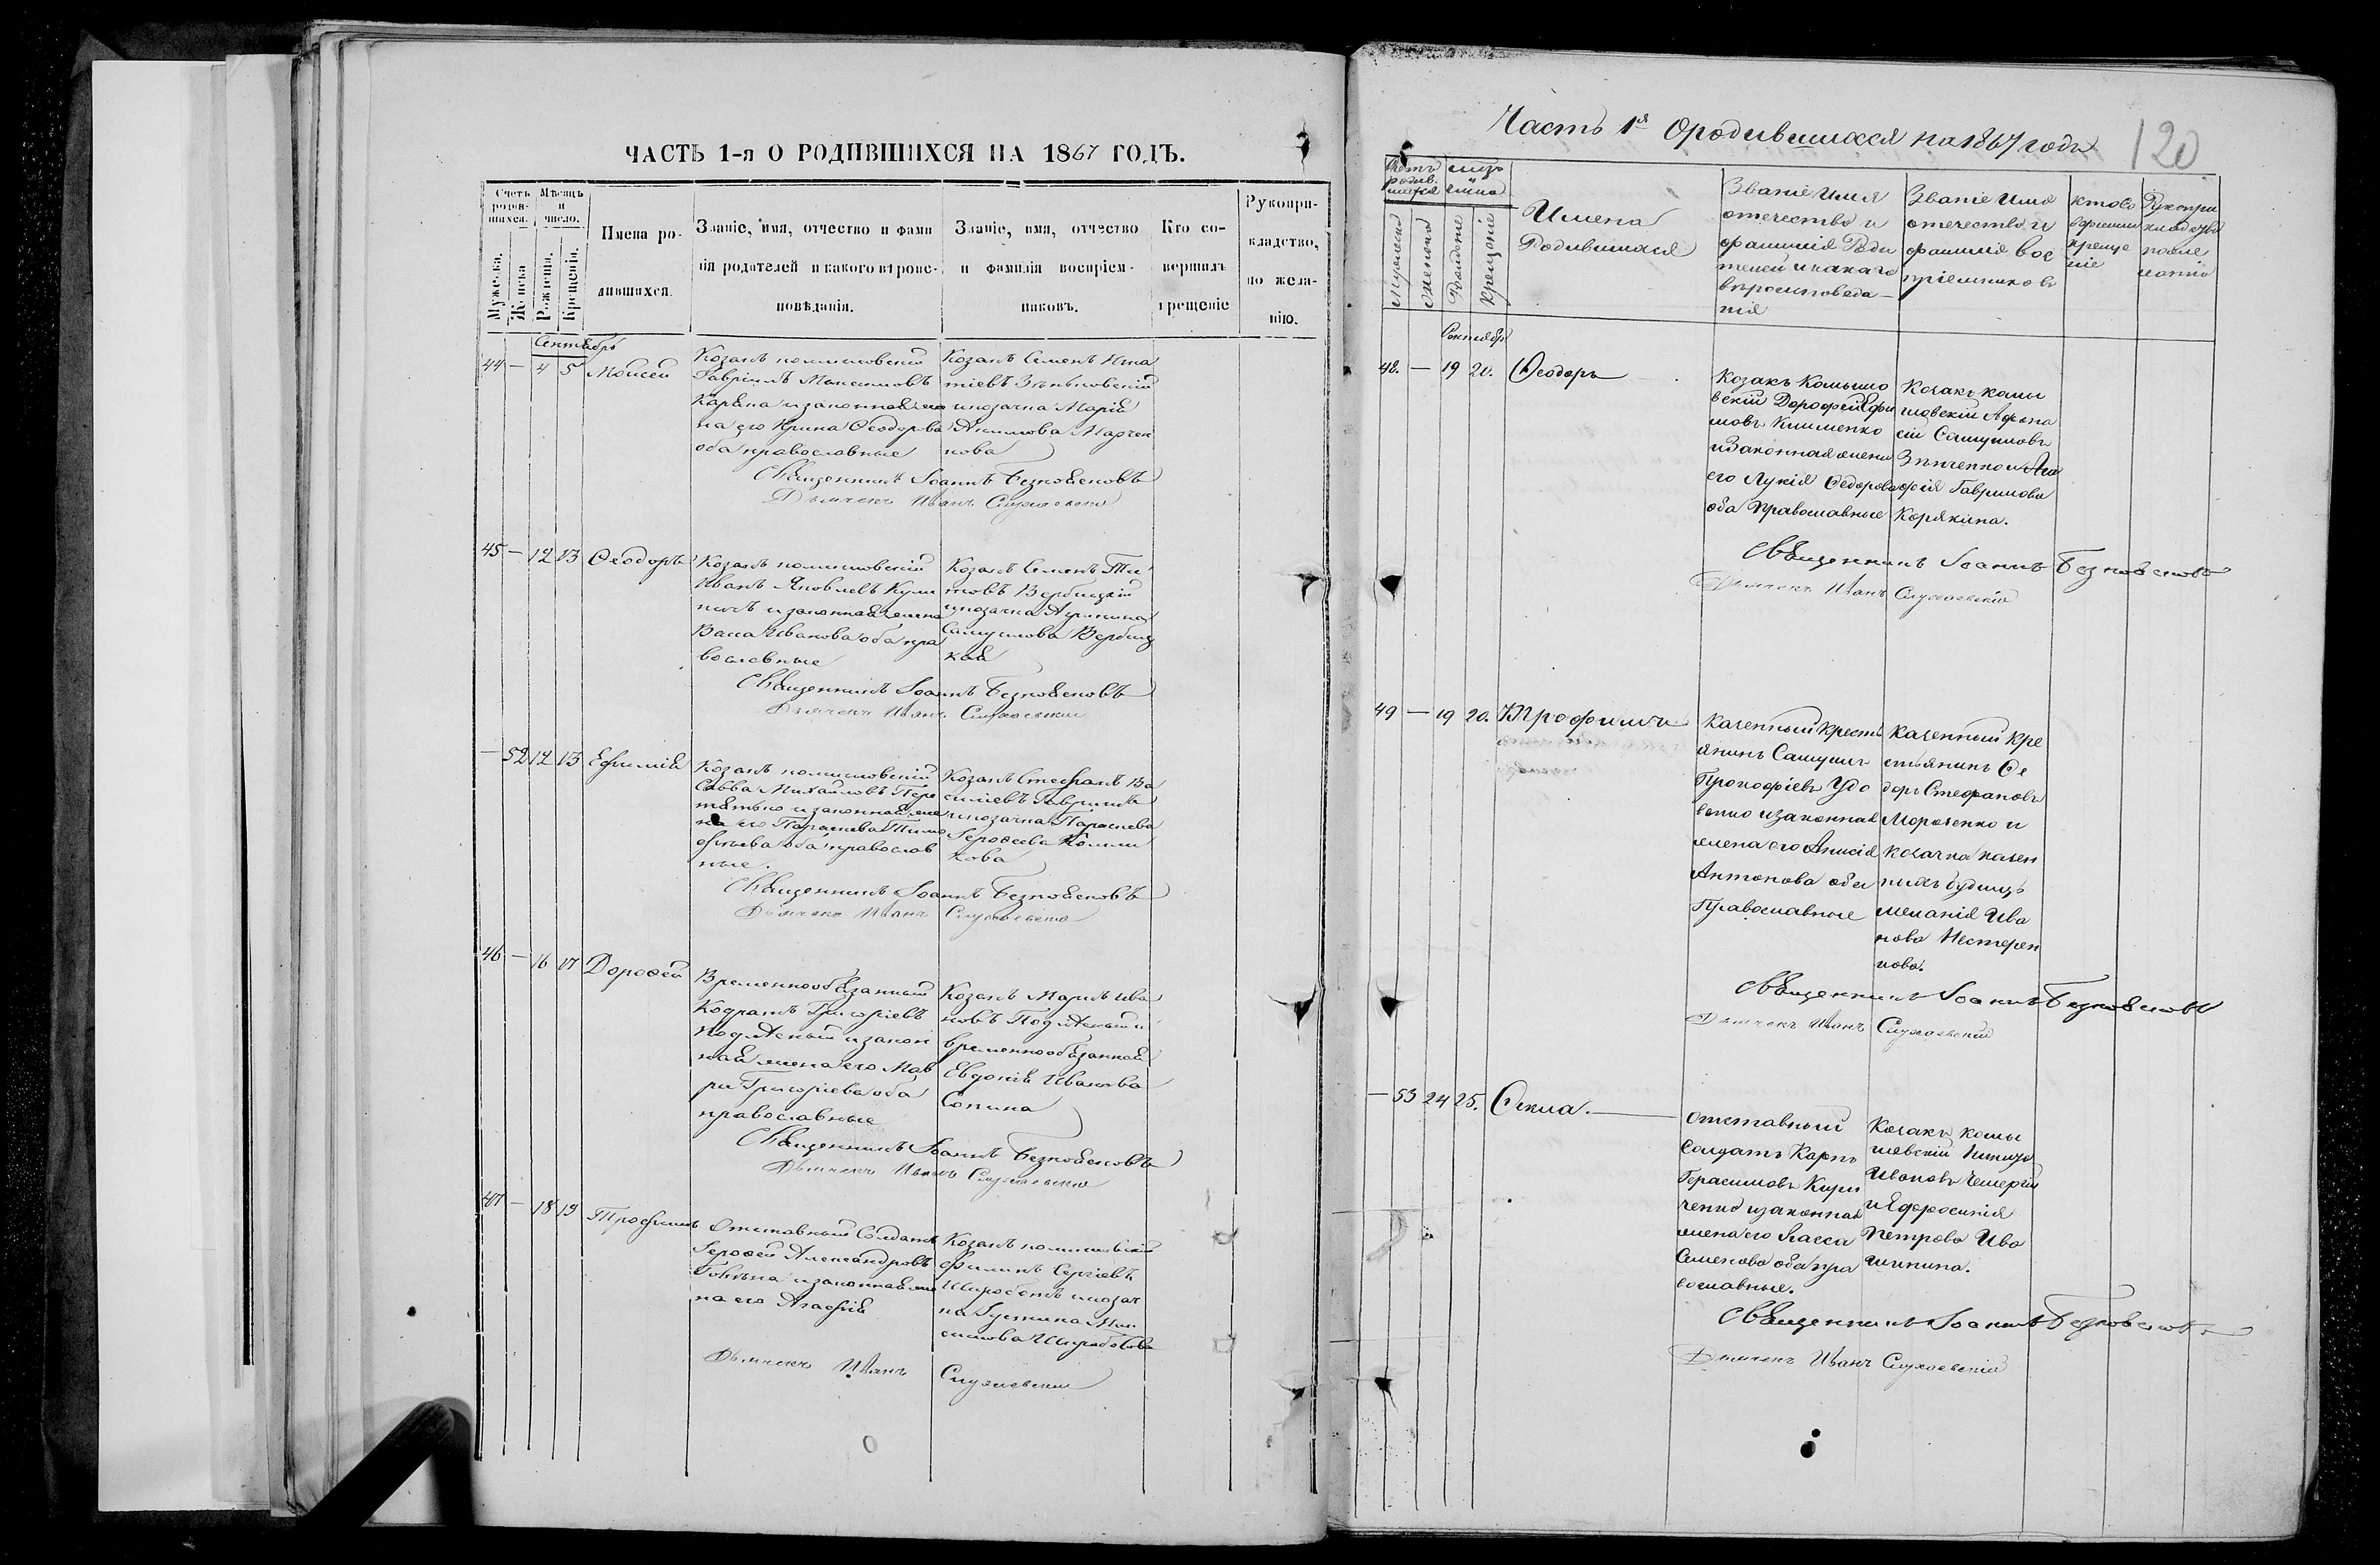 ЧАСТЬ 1-я О РОДИВШИХСЯ НА 1867 ГОДЪ.
Счетъ родив-шихся.
Мужеска.
Женска
Мѣсяцъ и число.
Рожденія.
Крещенія.
Имена ро-
дившихся.
Званіе, имя, отчество и фами
лія родителей и какого вѣроис-
повѣданія.
Званіе, имя, отчество
и фамилія воспріем-
никовъ.
Кто со-
вершилъ
крещеніе
Рукопри-
кладство,
по жела-
нію.
Сентябрь
44 — 4 5 Моисей
Козакъ комишовскій
Гавріилъ Максимовъ
Карвна и законная же
на его Ирина Ѳеодорова
оба православные
Козакъ Семенъ Игна
тіевъ Зѣньковскій
и козачка Марія
Акимова Марчен
кова
Священникъ Іоаннъ Безповѣсновъ
Дьячекъ Иванъ
45 — 12 13 Ѳеодоръ
Козакъ комишовскій
Иванъ Яковлевъ Кули
ничъ и законная жена
Васса Иванова оба пра
вославные
Козакъ Семенъ Ти
товъ Вербицкій
и козачка
Самуилова Вербиц
кая
Священникъ Іоаннъ
Дьячекъ Иванъ
— 52 12 13 Ефимія
Козакъ комишовскій
Савва Михайловъ Пере
тятько и законная же
на его Параскева Тимо
фѣева оба православ
ные.
Козакъ Стефанъ Ва
силіевъ Гаврилко
и козачка Параскева
Іероѳеева
кова
Священникъ Іоаннъ
Дьячекъ Иванъ
46 — 16 17 Дороѳей
Временнообязанный
Кодратъ Григоріевъ
Подлѣсный и закон
ная жена его Мав
ра Григоріева оба
православные
Козакъ Маркъ Ива
новъ Подлѣсный и
временнообязанная
Евдокія Иванова
Сопина
Священникъ Іоаннъ
Дьячекъ Иванъ
47 — 18 19 Трофимъ
Отставный Солдатъ
Іероѳей Александровъ
и законная же
на его Агафія
Козакъ комишовскій
Филипъ Сергіевъ
и козач
ка Іустина Мак
симова
Дьячекъ Иванъ
Часть 1я О родившихся на 1867 годъ
120
Счетъ родив-шихся
Мужеска
Женска
Мѣсяцъ и число
Рожденіе
Крещеніе
Имена
Родившихся
Званіе Имя
отечество и
фамилія Роди
телей и какаго
вѣроисповѣда—
нія
Званіе Имя
отечество и
фамилія вос
пріемниковъ
кто со
вершил
креще
ніе
Рукопри
кладство
по же
ланію
Сентябрь
48. — 19 20. Ѳеодоръ
Козакъ Комышо
вскій Дорофей Ефи
мовъ Клименко
и Законная жена
его Лукія Ѳедорова
оба Православные
Козакъ комы
шовскій Афана
сій Самуиловъ
Зѣнченко и Ага
фія Гаврилова
Корякина.
Священникъ Іоаннъ
Дьячекъ Иванъ
49 — 19 20. Трофимъ
казенный кресть
янинъ Самуилъ
Прокофіевъ Удо
венко и законная
жена его Анисія
Антонова оба
Православные
казенный кре
стьянинъ Ѳе
доръ Стефановъ
Морозенко и
козачка казен
ныхъ будищъ
Меланія Ива
нова Нестерен
кова.
Священникъ Іоаннъ
Дьячекъ Иванъ
— 53 24 25. Ѳекла.
отставный
солдатъ Карпъ
Герасимовъ Кири
ченко и законная
жена его Васса
Семенова оба пра
вославные.
Козакъ комы
шовскій
Ивановъ
и Ефросинія
Петрова Ива
шинина.
Священникъ Іоаннъ
Дьячекъ Иванъ